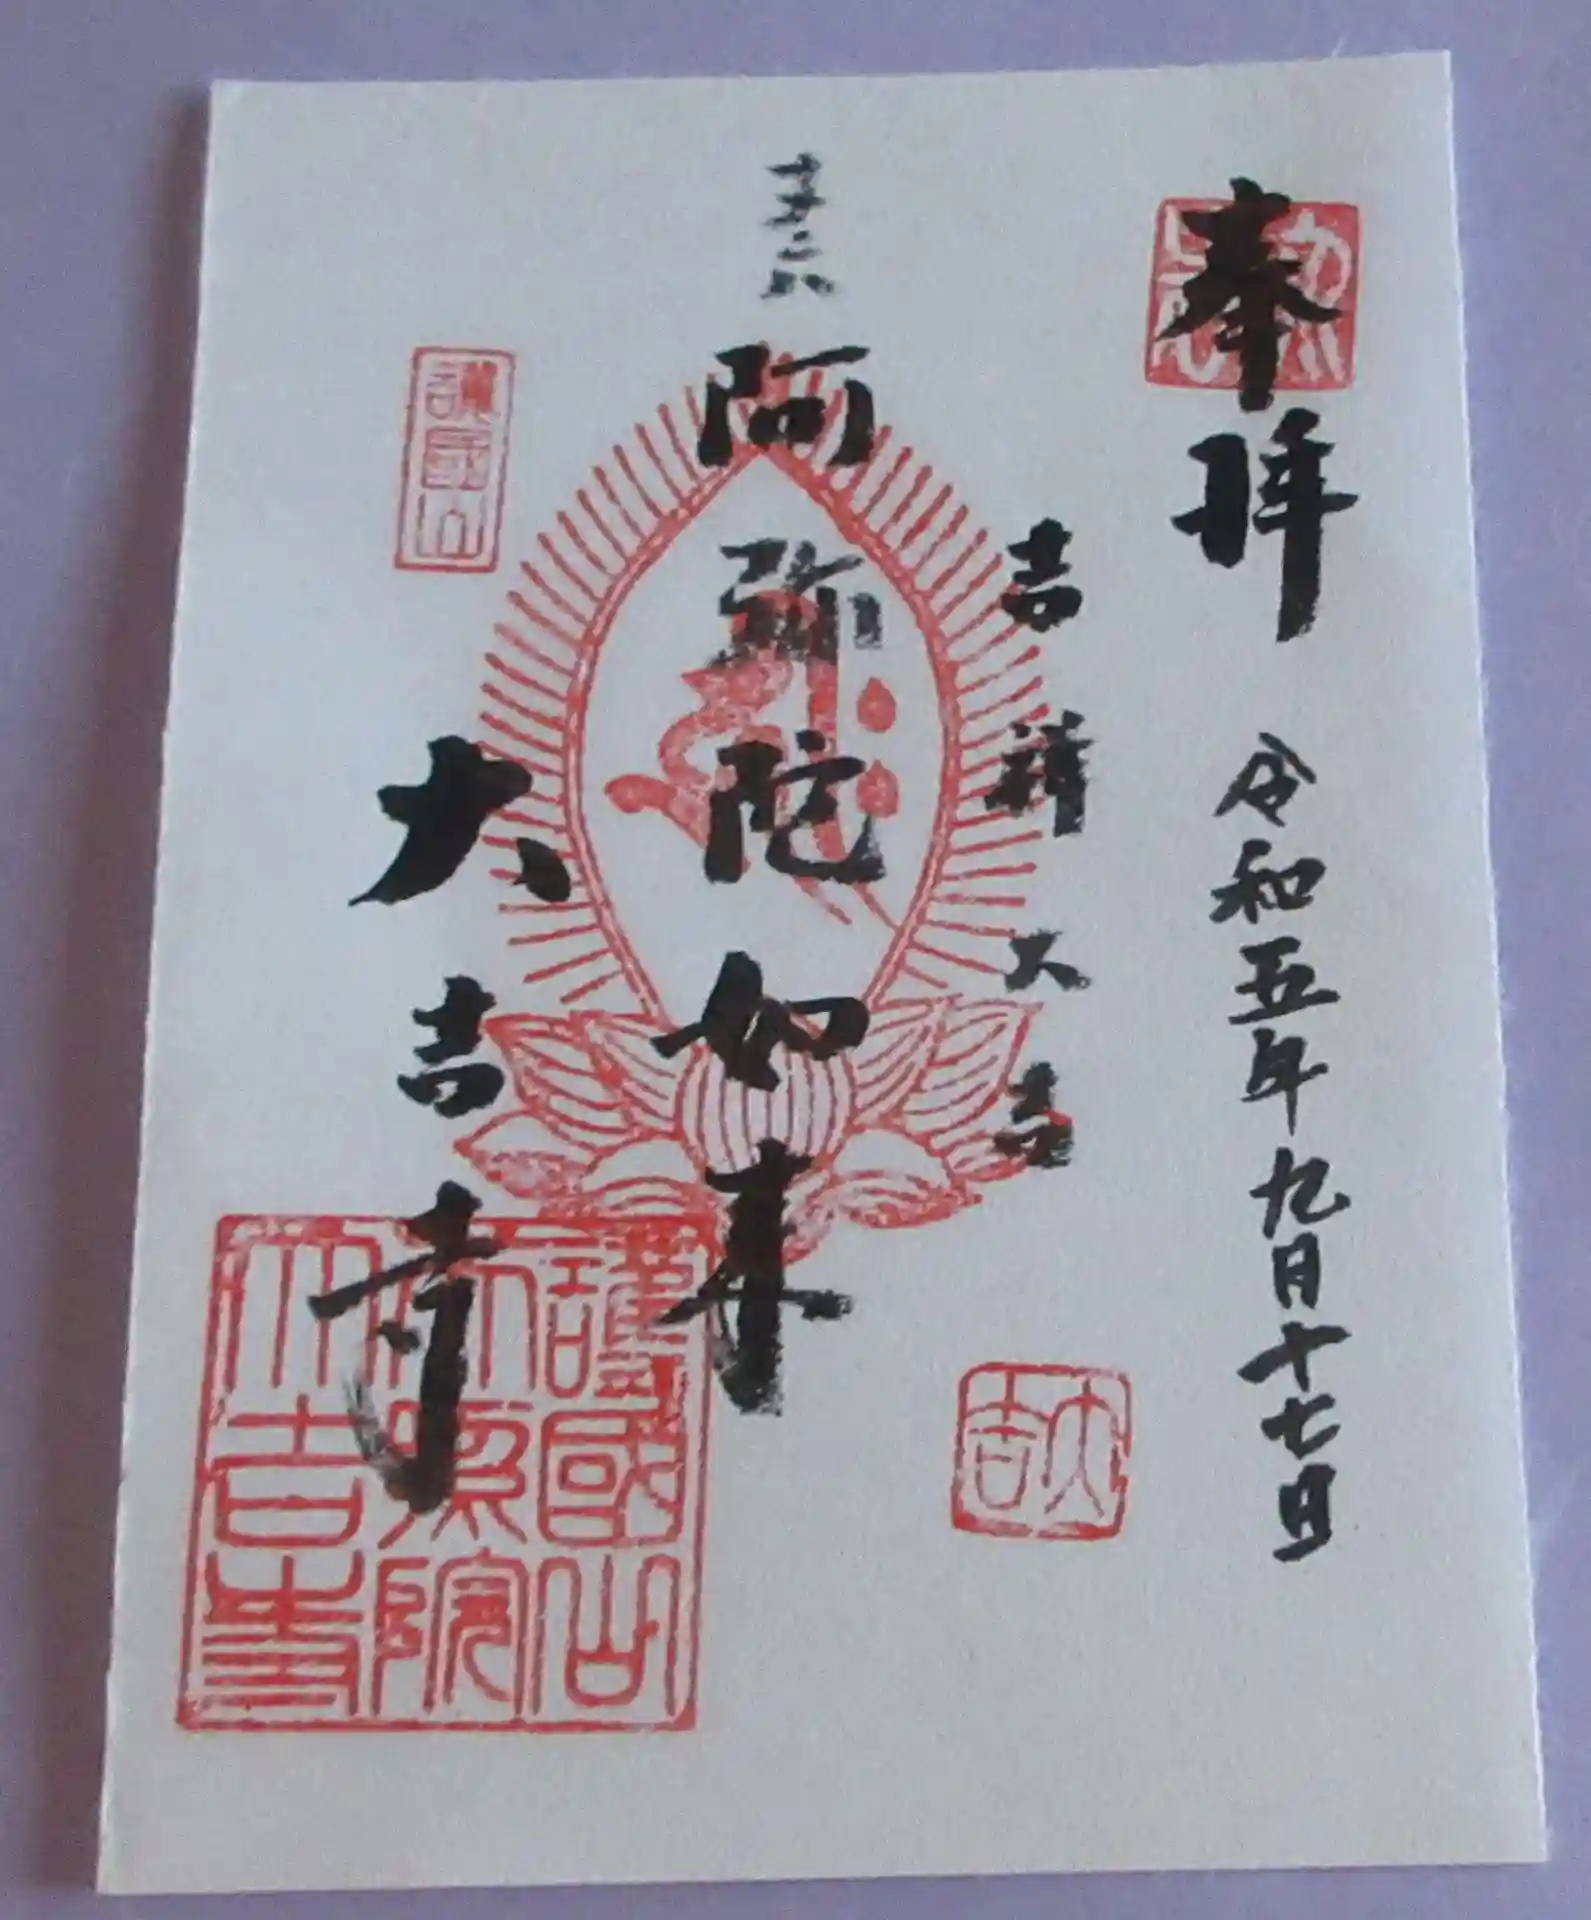 奉拝
令和五年九月十七日
吉祥大吉
大吉
阿弥陀如来
護國山
大吉寺
護國山
大吉寺